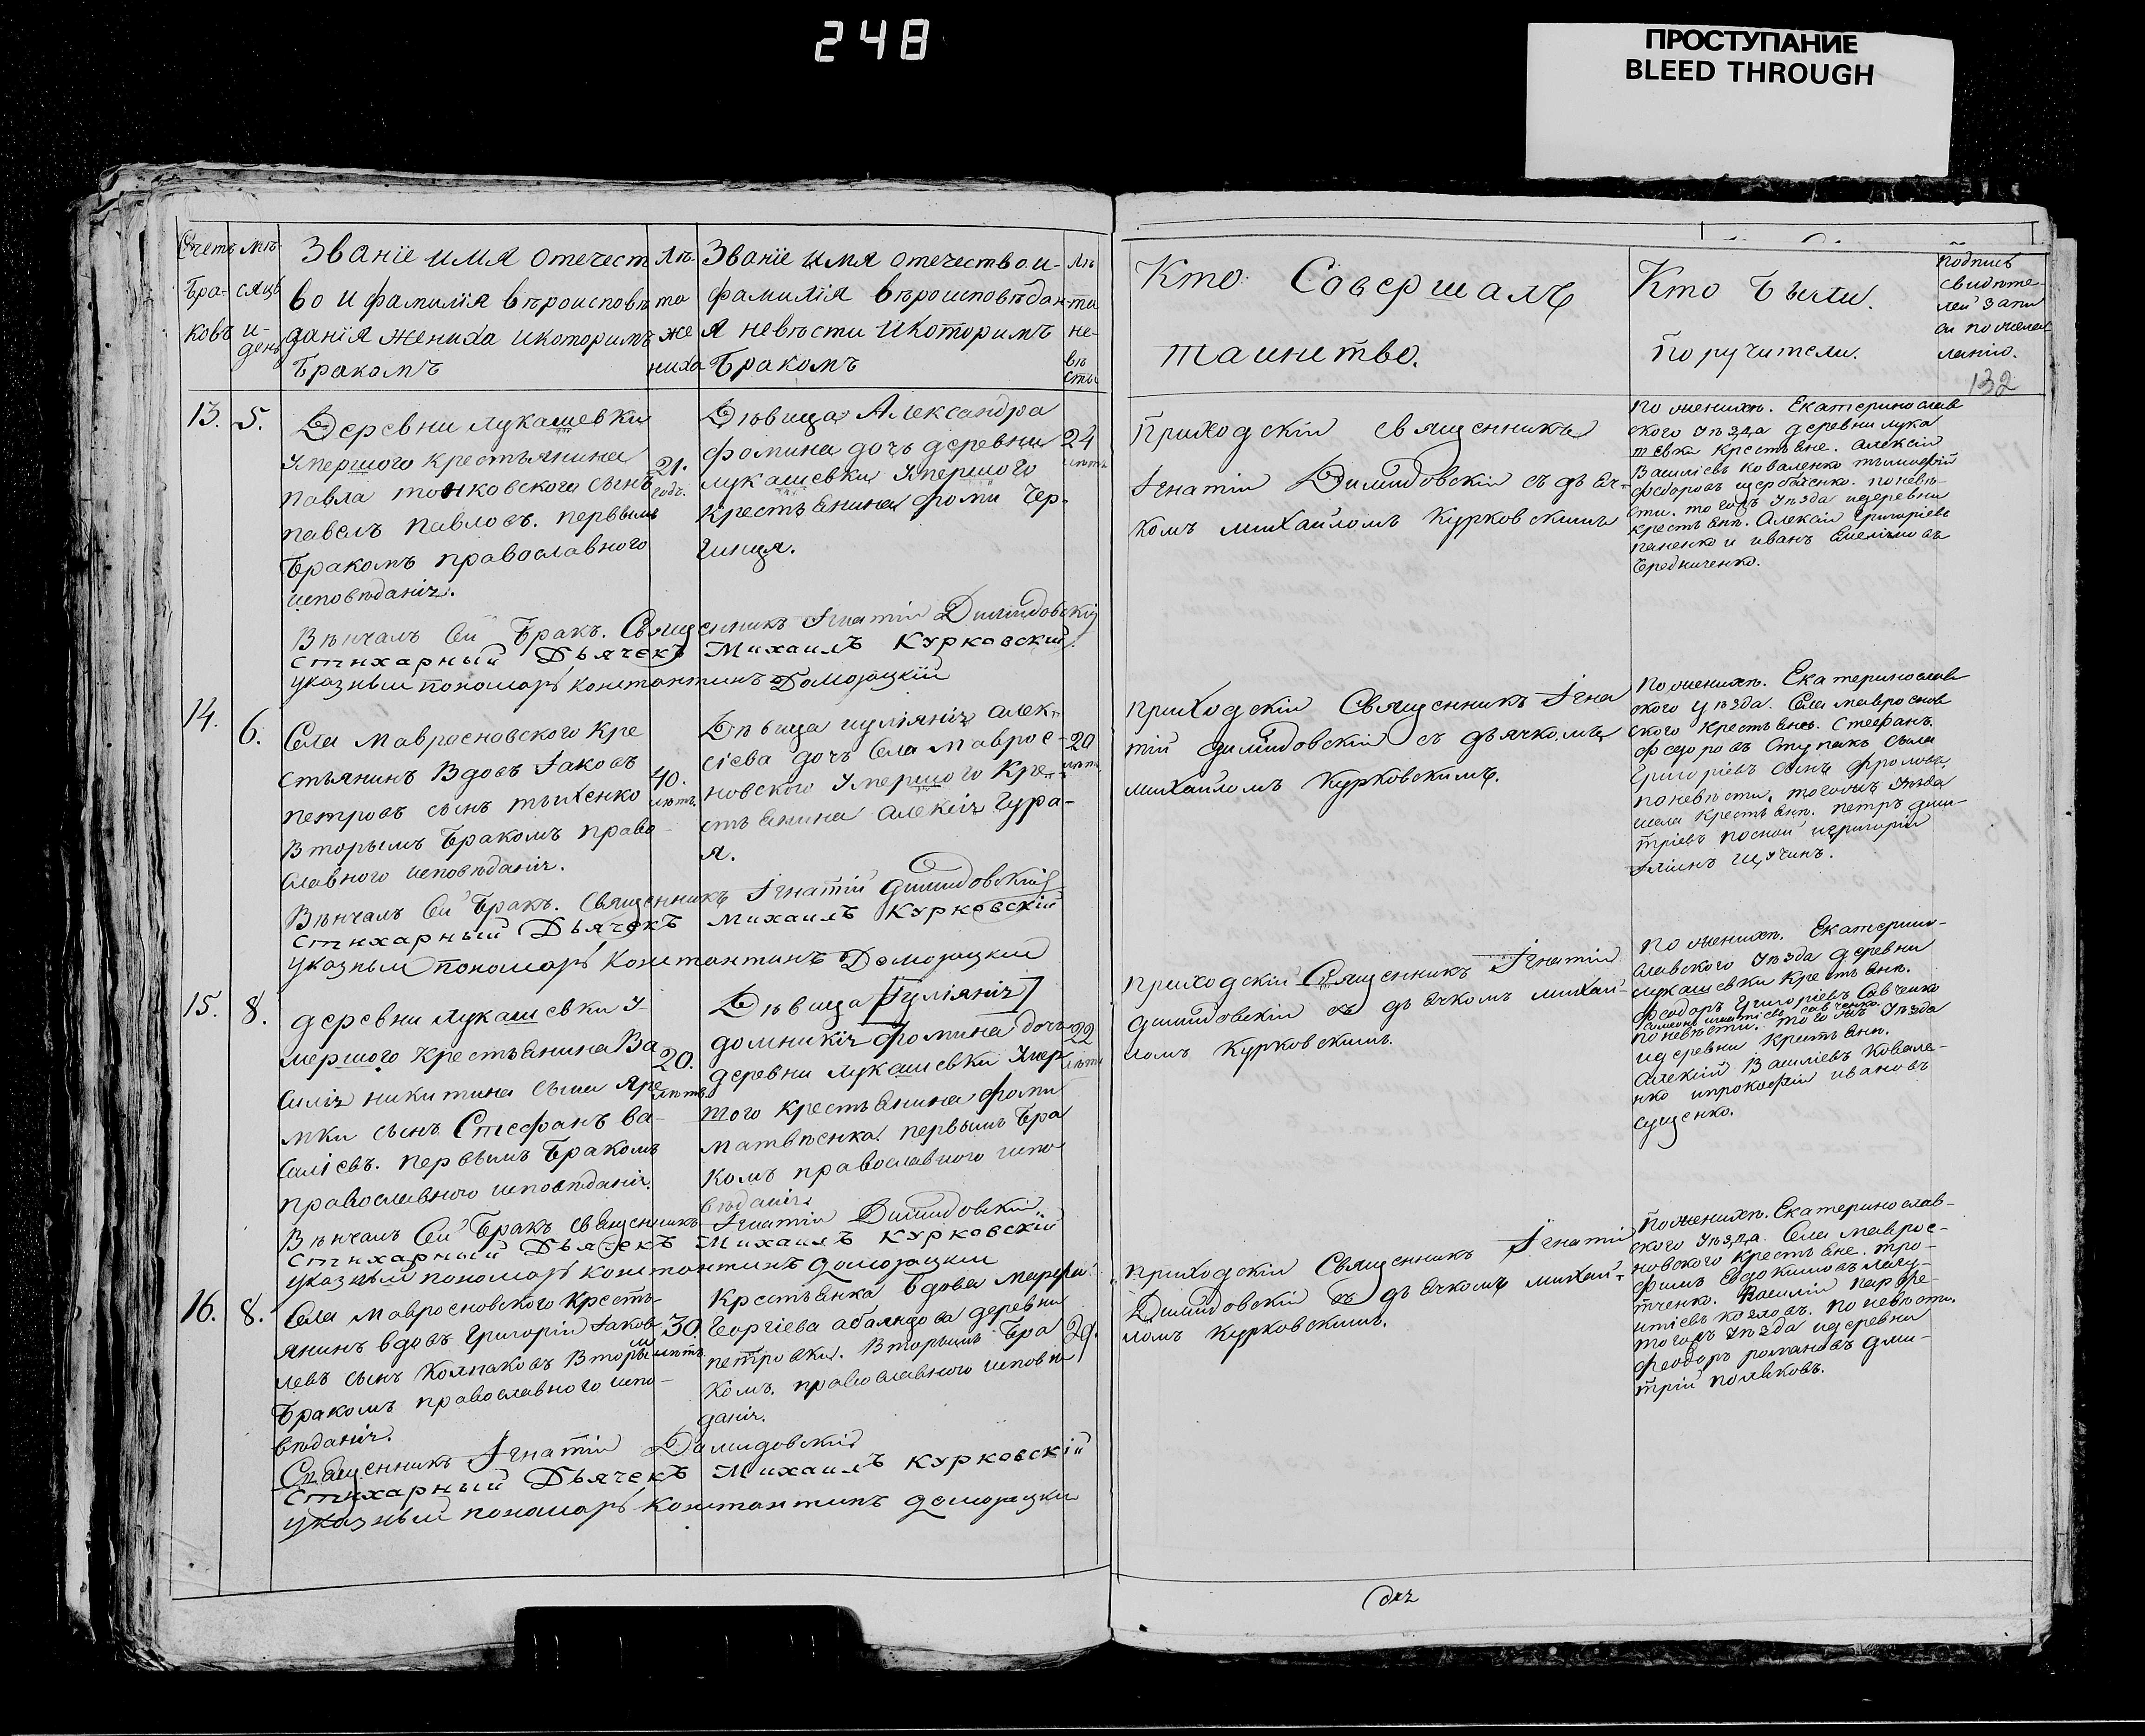 248
ПРОСТУПАНИЕ
BLEED THROUGH
Счетъ
Бра-
ковъ
мѣ-
сяцъ
и-
день
Званіе имя отечест
во и фамилія вѣроисповѣ
данія жениха и которимъ
Бракомъ
Лѣ-
та
же
ниха
Званіе имя отечество и-
фамилія вѣроисповѣдан-
я невѣсти и которимъ
Бракомъ
Лѣ
та
не-
вѣ
сты
Кто Совершалъ
таинство.
Кто Были
Поручители.
подпись
свидѣте-
лей запи
си по желал
ланію.
132
13.
5.
Деревни Лукашевки
Умершого крестьянина
Павла тонковского сынъ
павелъ Павловъ. первымъ
Бракомъ православного
исповѣданія.
21.
годъ.
Дѣвица Александра
фомина дочь деревни
лукашевки Умершого
Крестьянина фоми Чер-
24
лѣтъ
Приходскій священникъ
Игнатій Димидовскій съ дьяч-
комъ михайломъ Курковскимъ
По женихѣ. Екатеринослав
ского уѣзда деревни лука
шевки Крестьяне. Алексій
Василіевъ Коваленко тымофій
федоровъ щербаченко. по невѣ-
сти. того жъ Уѣзда и деревни
Крестьянѣ. Алексій Григоріевъ
паненко и иванъ
Чередниченко.
Вѣнчалъ Сей Бракъ. Священникъ Игнатій Димидовскій
Стихарный Дьячекъ Михаилъ Курковскій
указный пономарь Константинъ Доморацкій
14.
6.
Села Мавросновского Кре
стьянинъ Вдовъ Іаковъ
петровъ сынъ тыхенко
Вторымъ Бракомъ право-
славного исповѣданія.
40.
лѣтъ.
Дѣвица иуліянія алек-
сіева дочь Села Маврос-
новского Умершого Кре-
стьянина алексія Гура-
я.
20
лѣтъ
приходскій Священникъ Игна
тій димидовскій съ дьячкомъ
михайломъ Курковскимъ.
По женихѣ. Екатеринослав
ского уѣзда. Села маврснов
ского Крестьяне. Стефанъ
Федоровъ Ступакъ
Григоріевъ сынъ фроловъ,
по невѣсти. того жъ Уѣзда
исела Крестьянѣ. петръ дми-
тріевъ посной игригорій
Вѣнчалъ Сей Бракъ. Священникъ Игнатій Димидовскій
Стихарный Дьячекъ Михаилъ Курковскій
указный пономарь Константинъ Доморацкій
15.
8.
деревни Лукашевки У-
мершого Крестьянина Ва
силія никитина сына Яре
мки сынъ Стефанъ Ва-
силіевъ. первымъ Бракомъ
православного исповѣданія.
20.
лѣтъ
Дѣвица [Гуліянія]
домникія фомина дочь
деревни лукашевки Умер
шого крестьянина фоми
матвѣенка первымъ Бра
Комъ православного испо-
вѣданія
22
лѣтъ
приходскій Священникъ Игнатій
димидовскій съ дьячкомъ михай-
ломъ Курковскимъ.
По женихѣ. Екатерино-
славского Уѣзда деревни
лукашевки Крестьянѣ.
Феодоръ Григоріевъ Савченко
по невѣсти. того жъ Уѣзда
и деревни Крестьянѣ.
Алексій Василіевъ Ковале-
нко ипрокофій ивановъ
сущенко.
Вѣнчалъ Сей Бракъ священникъ Игнатій Димидовскій.
Стихарный Дьячекъ Михаилъ Курковскій
указный пономарь Константинъ доморацкій
16.
8.
Села Мавросновского Кресть-
янинъ вдовъ Григорій Іаков
левъ сынъ Колпаковъ Вторы
мъ
Бракомъ православного испо-
вѣданія.
30.
лѣтъ.
Крестьянка вдова марфа
Георгіева абалядова деревни
петровки. Вторымъ Бра
комъ. православного исповѣ
данія.
29.
приходскій Священникъ Игнатій
Димидовскій съ дьячкомъ михай-
ломъ Курковскимъ.
По женихѣ. Екатеринослав-
ского Уѣзда. Села маврос-
новского Крестьяне. тро-
фимъ Евдокимовъ
Василій парфе-
нтіевъ козловъ. по невѣсти.
того жъ Уѣзда и деревни
феодоръ романовъ дми-
трій поляковъ.
Священникъ Игнатій Димидовскій
Стихарный Дьячекъ Михаилъ Курковскій
указный пономарь Константинъ доморацкій